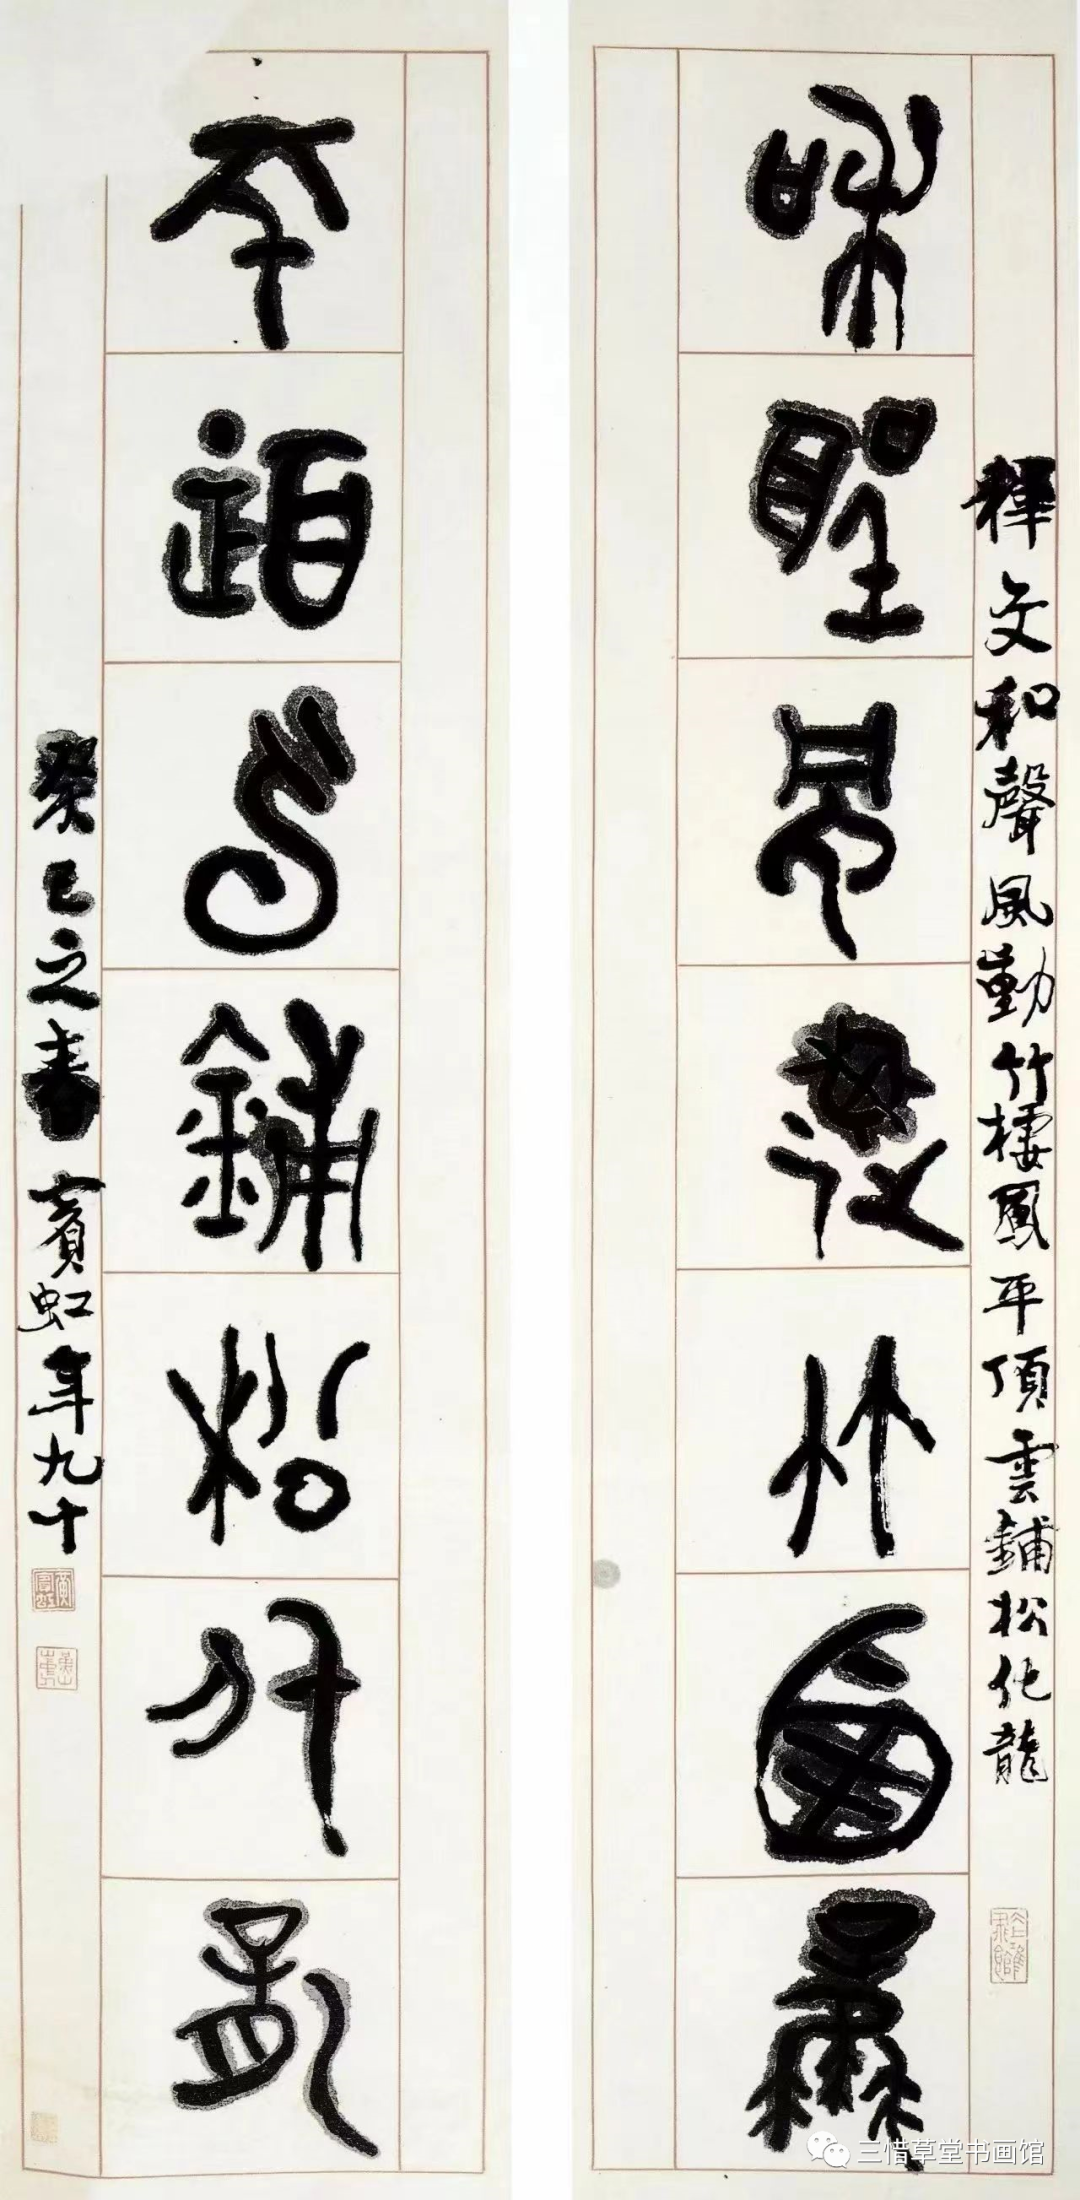 龢聲風動竹棲鳳
釋文和聲風動竹棲鳳平頂雲鋪松化龍
平頂雲鋪松化龍
癸巳之春賓虹年九十
三惜草堂书画馆